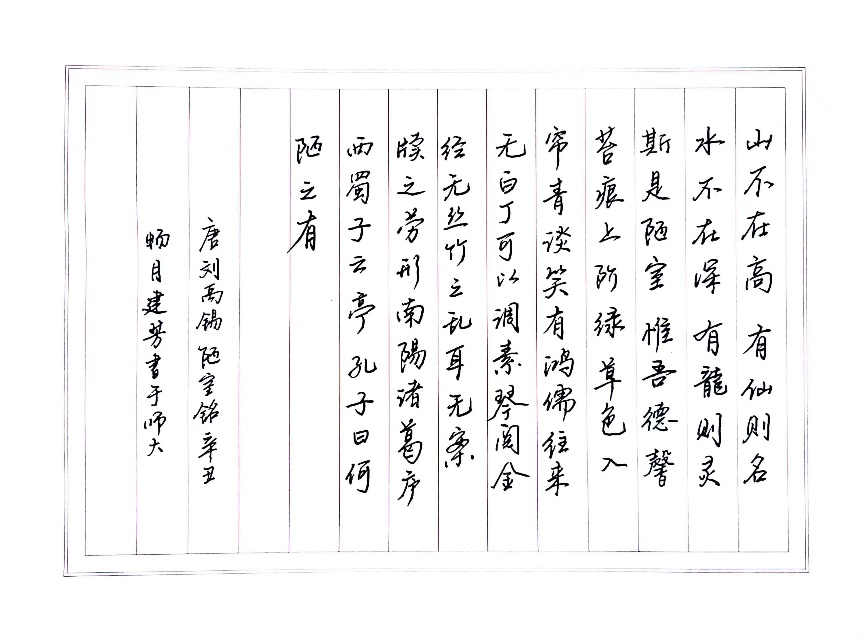 山不在高有仙则名
水不在深有龍则灵
斯是陋室惟吾德馨
苔痕上阶绿草色入
帘青谈笑有鸿儒往来
无白丁可以调素琴阅金
经无丝竹之乱耳无案
牍之劳形南陽诸葛庐
西蜀子云亭孔子曰何
陋之有
唐刘禹锡陋室铭辛丑
畅月建芳书于师大